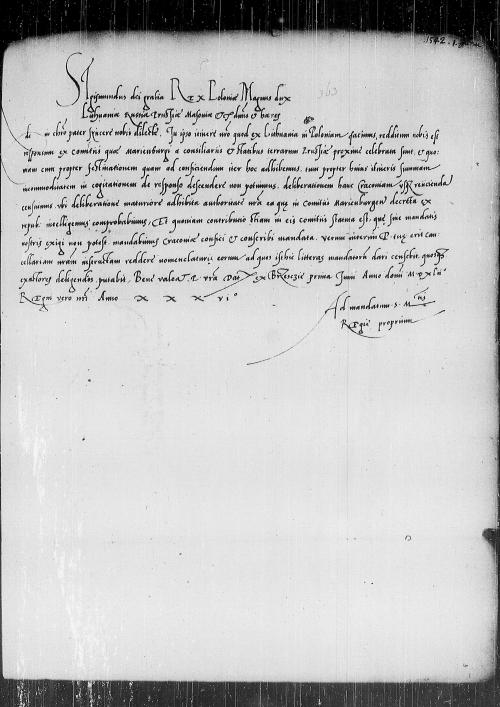 1542. 1.
Sigismundus dei gratia Rex Poloniæ Magnus dux
Lithuaniæ Russiæ Prussiæ Masoviæ etc dñus et hæres
in chro pater sincere nobis dilecte. In ipso itinere nrõ quod ex Lithuania in Poloniam facimus, redditum nobis est
responsum ex comitiis quæ Marienburgi a consiliariis et statibus terrarum Prussiæ proxime celebrata sunt, et quo:
niam cum propter festinationem quam ad conficiendum iter hoc adhibemus, tum propter huius itineris summam
incommoditatem in cogitationem de responso descendere non potuimus, deliberationem hanc Cracoviam reiiciendã
censuimus, ubi deliberatione maturiore adhibita authoritate nrã ea quæ in comitiis Marienburgen decreta ex
repub. intelligemus comprobabimus, Et quoniam contributio etiam in eis comitiis statuta est, quę sine mandatis
nostris exigi non potest, mandabimus Cracoviæ confici et conscribi mandata. verum interim P. erit can
cellariam nrãm instructam reddere nomenclaturis eorum ad quos istius litteras mandatorũ dari censebit, quosque
exactores deligendos putabit. Bene valeat P. vrã Dat ex Brzescie prima Junii Anno domi M D xlii
Regni vero nri Anno xxxvi°
Ad mandatum S. M tis
Regiæ proprium